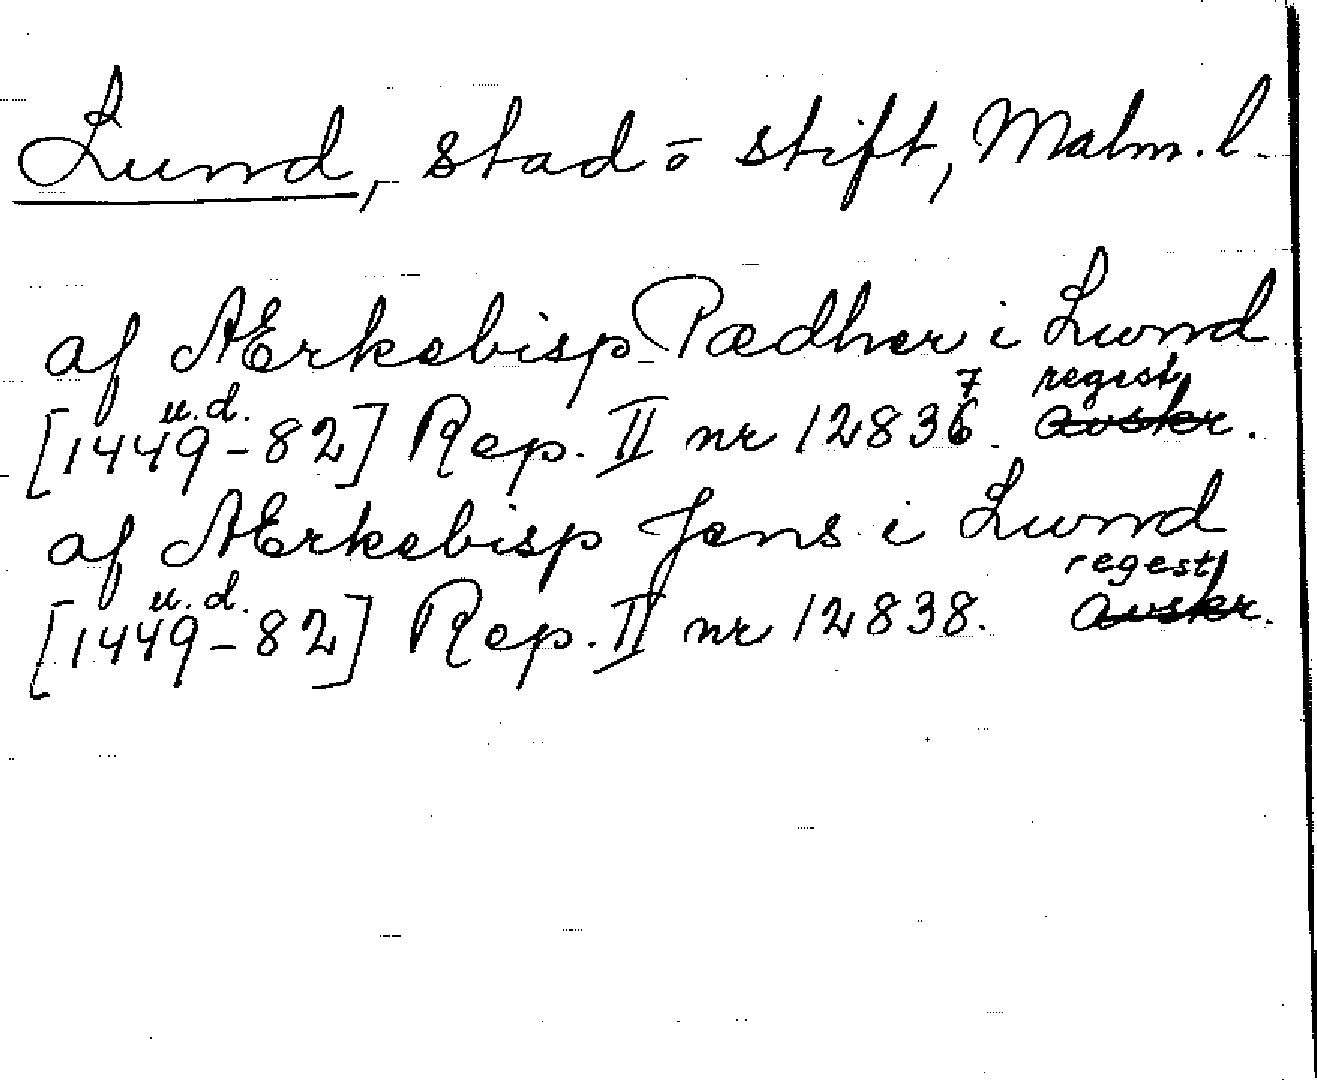 Lund, stad ō stift, Malm. l.
af Ærkebisp Pædher i Lund
u.d. 7 regest,
[1449-82] Rep. II nr 12836. avskr.
af Ærkebisp Jens i Lund
u.d. regest,
[1449-82] Rep. II nr 12838. avskr.